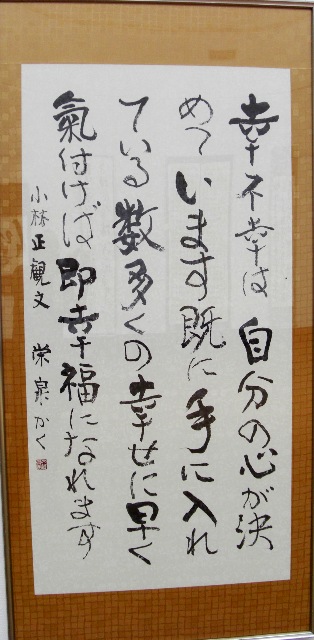 幸不幸は自分の心が決
めています既に手に入れ
ている数多くの幸せに早く
氣付けば即幸福になれます
小林正観文 栄泉かく